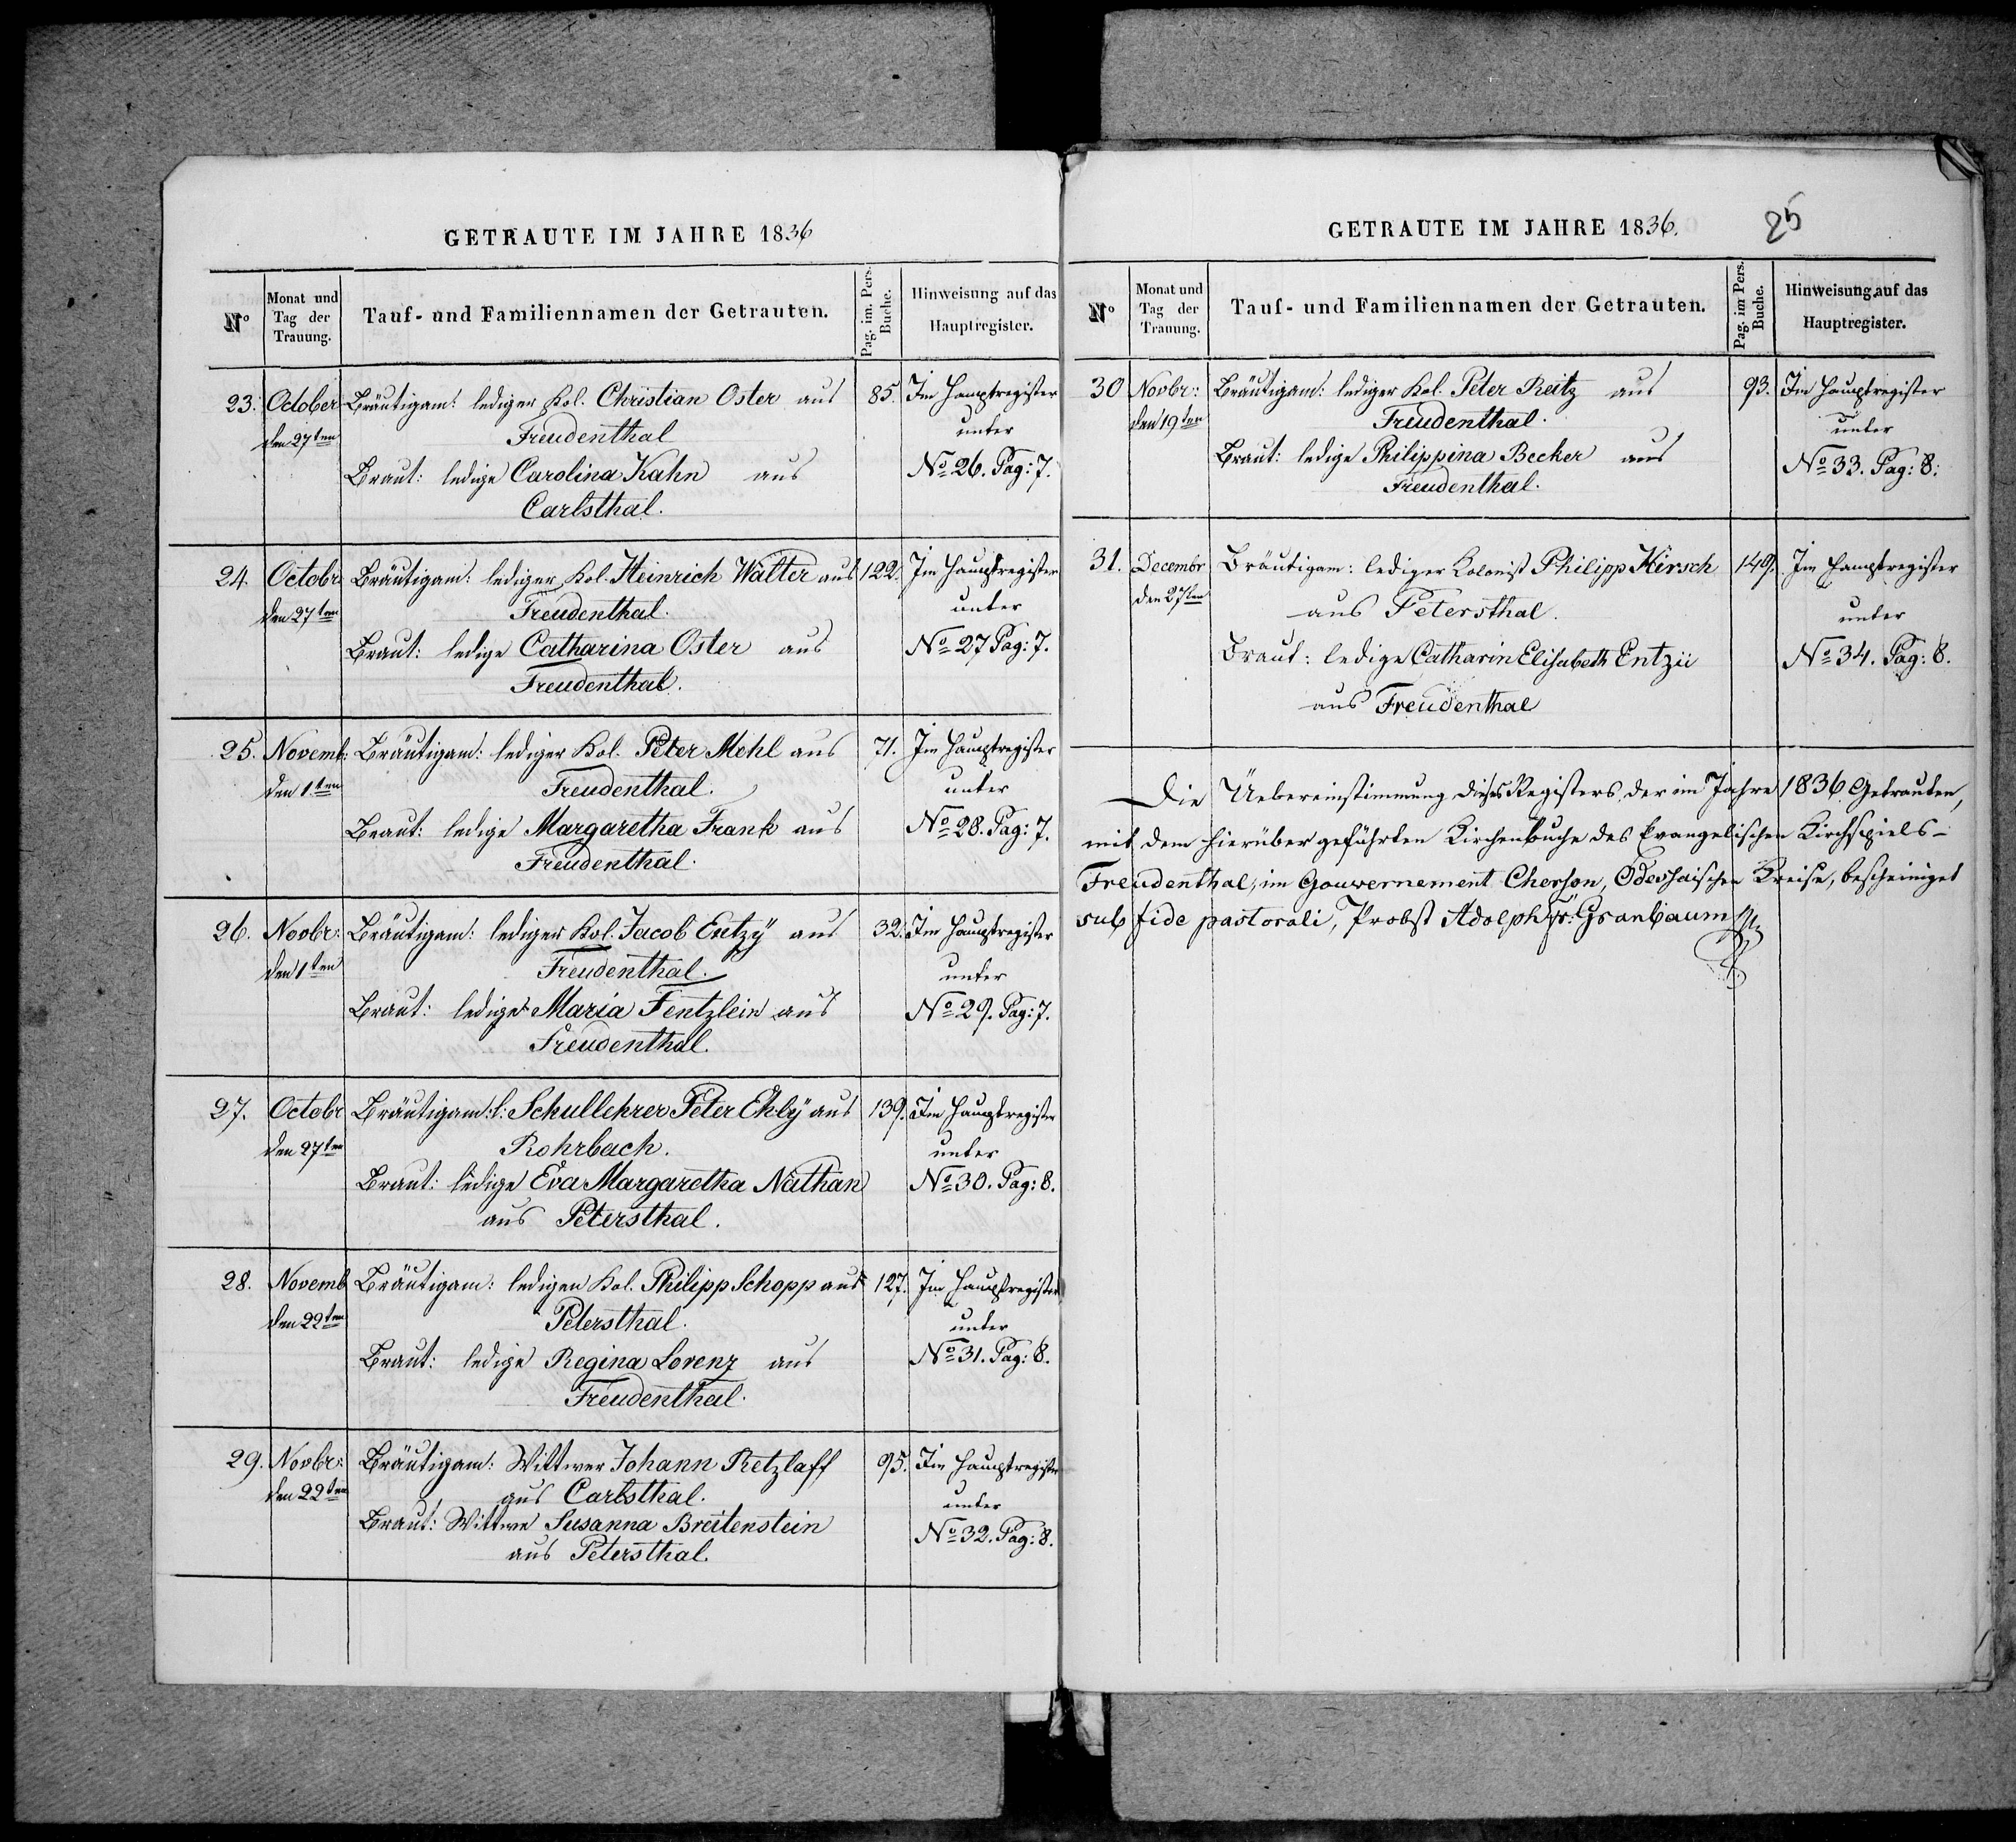 GETRAUTE IM JAHRE 1836
No
Monat und
Tag der
Trauung.
Tauf- und Familiennamen der Getrauten.
Pag. im. Pers.
Buche.
Hinweisung auf das
Hauptregister.
23. October Bräutigam: lediger Kol. Christian Oster aus 85. Im Hauptregister
den 27ten Freudenthal unter
Braut: ledige Carolina Kahn aus No 26. Pag: 7.
Carlsthal.
24. Octobr Bräutigam: lediger Kol. Heinrich Walter aus 122. Im Hauptregister
den 27ten Freudenthal. unter
Braut: ledige Catharina Oster aus No 27 Pag: 7.
Freudenthal.
25. Novemb: Bräutigam: lediger Kol. Peter Mehl aus 71. Im Hauptregister
den 1.ten Freudenthal. unter
Braut: ledige Margaretha Frank aus No 28. Pag: 7.
Freudenthal.
26. Novbr: Bräutigam: lediger Kol. Jacob Entzÿ aus 32. Im Hauptregister
den 1ten Freudenthal. unter
Braut: ledige Maria Fentzlein aus No 29. Pag: 7.
Freudenthal.
27. Octobr Bräutigam: l: Schullehrer Peter Ehlÿ aus 139. Im Hauptregister
den 27ten Rohrbach. unter
Braut: ledige Eva Margaretha Nathan No 30. Pag: 8.
aus Petersthal.
28. Novemb Bräutigam: lediger Kol. Philipp Schopp aus 127. Im Hauptregister
den 22ten Petersthal. unter
Braut: ledige Regina Lorenz aus No 31. Pag: 8.
Freudenthal.
29. Novbr: Bräutigam: Wittwer Johann Retzlaff 95. Im Hauptregister
den 22ten aus Carlsthal. unter
Braut: Wittwe Susanna Breitenstein No 32. Pag: 8.
aus Petersthal.
GETRAUTE IM JAHRE 1836.
25
No
Monat und
Tag der
Trauung.
Tauf- und Familiennamen der Getrauten.
Pag. im Pers.
Buche.
Hinweisung auf das
Hauptregister.
30 Novbr: Bräutigam: lediger Kol. Peter Reitz aus 93. Im Hauptregister
den 19ten Freudenthal. unter
Braut: ledige Philippina Becker aus No 33. Pag: 8.
Freudenthal.
31. Decembr Bräutigam: lediger Kolonist Philipp Kirsch 149. Im Hauptregister
den 27ten aus Petersthal. unter
Braut: ledige Catharin Elisabeth Entzii No 34. Pag: 8.
aus Freudenthal
Die Uebereinstimmung dieses Registers der im Jahre 1836 Getrauten,
mit dem hierüber geführten Kirchenbuche des Evangelischen Kirchspiels-
Freudenthal, im Gouvernement Cherson, Odeshaischen Kreise, bescheinigt
sub fide pastorali, Probst Adolph Granbaum